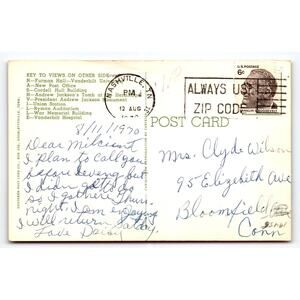 KEY TO VIEWS ON OTHER SIDE
A—Furman Hall—Vanderbilt University
A—New Post Office
G—Cordell Hull Building
H—Andrew Jackson's Tomb at
President Andrew Jackson Monument
I—Union Station
K—Ryman Auditorium
L—War Memorial Building
E—Vanderbilt Hospital
NASHVILLE, TN
PM
12 AUG
1970
ALWAYS USE
ZIP CODE
U.S. POSTAGE
6c
POST CARD
8/11/1970
Dear Mildred
I plan to call you
before leaving but
I didn get to do
so I got here Thurs.
night. I am enjoying
I will return Satday.
Love Daisy
Mrs. Clyde Wilson
95 Elizabeth Ave
Bloomfield
Conn